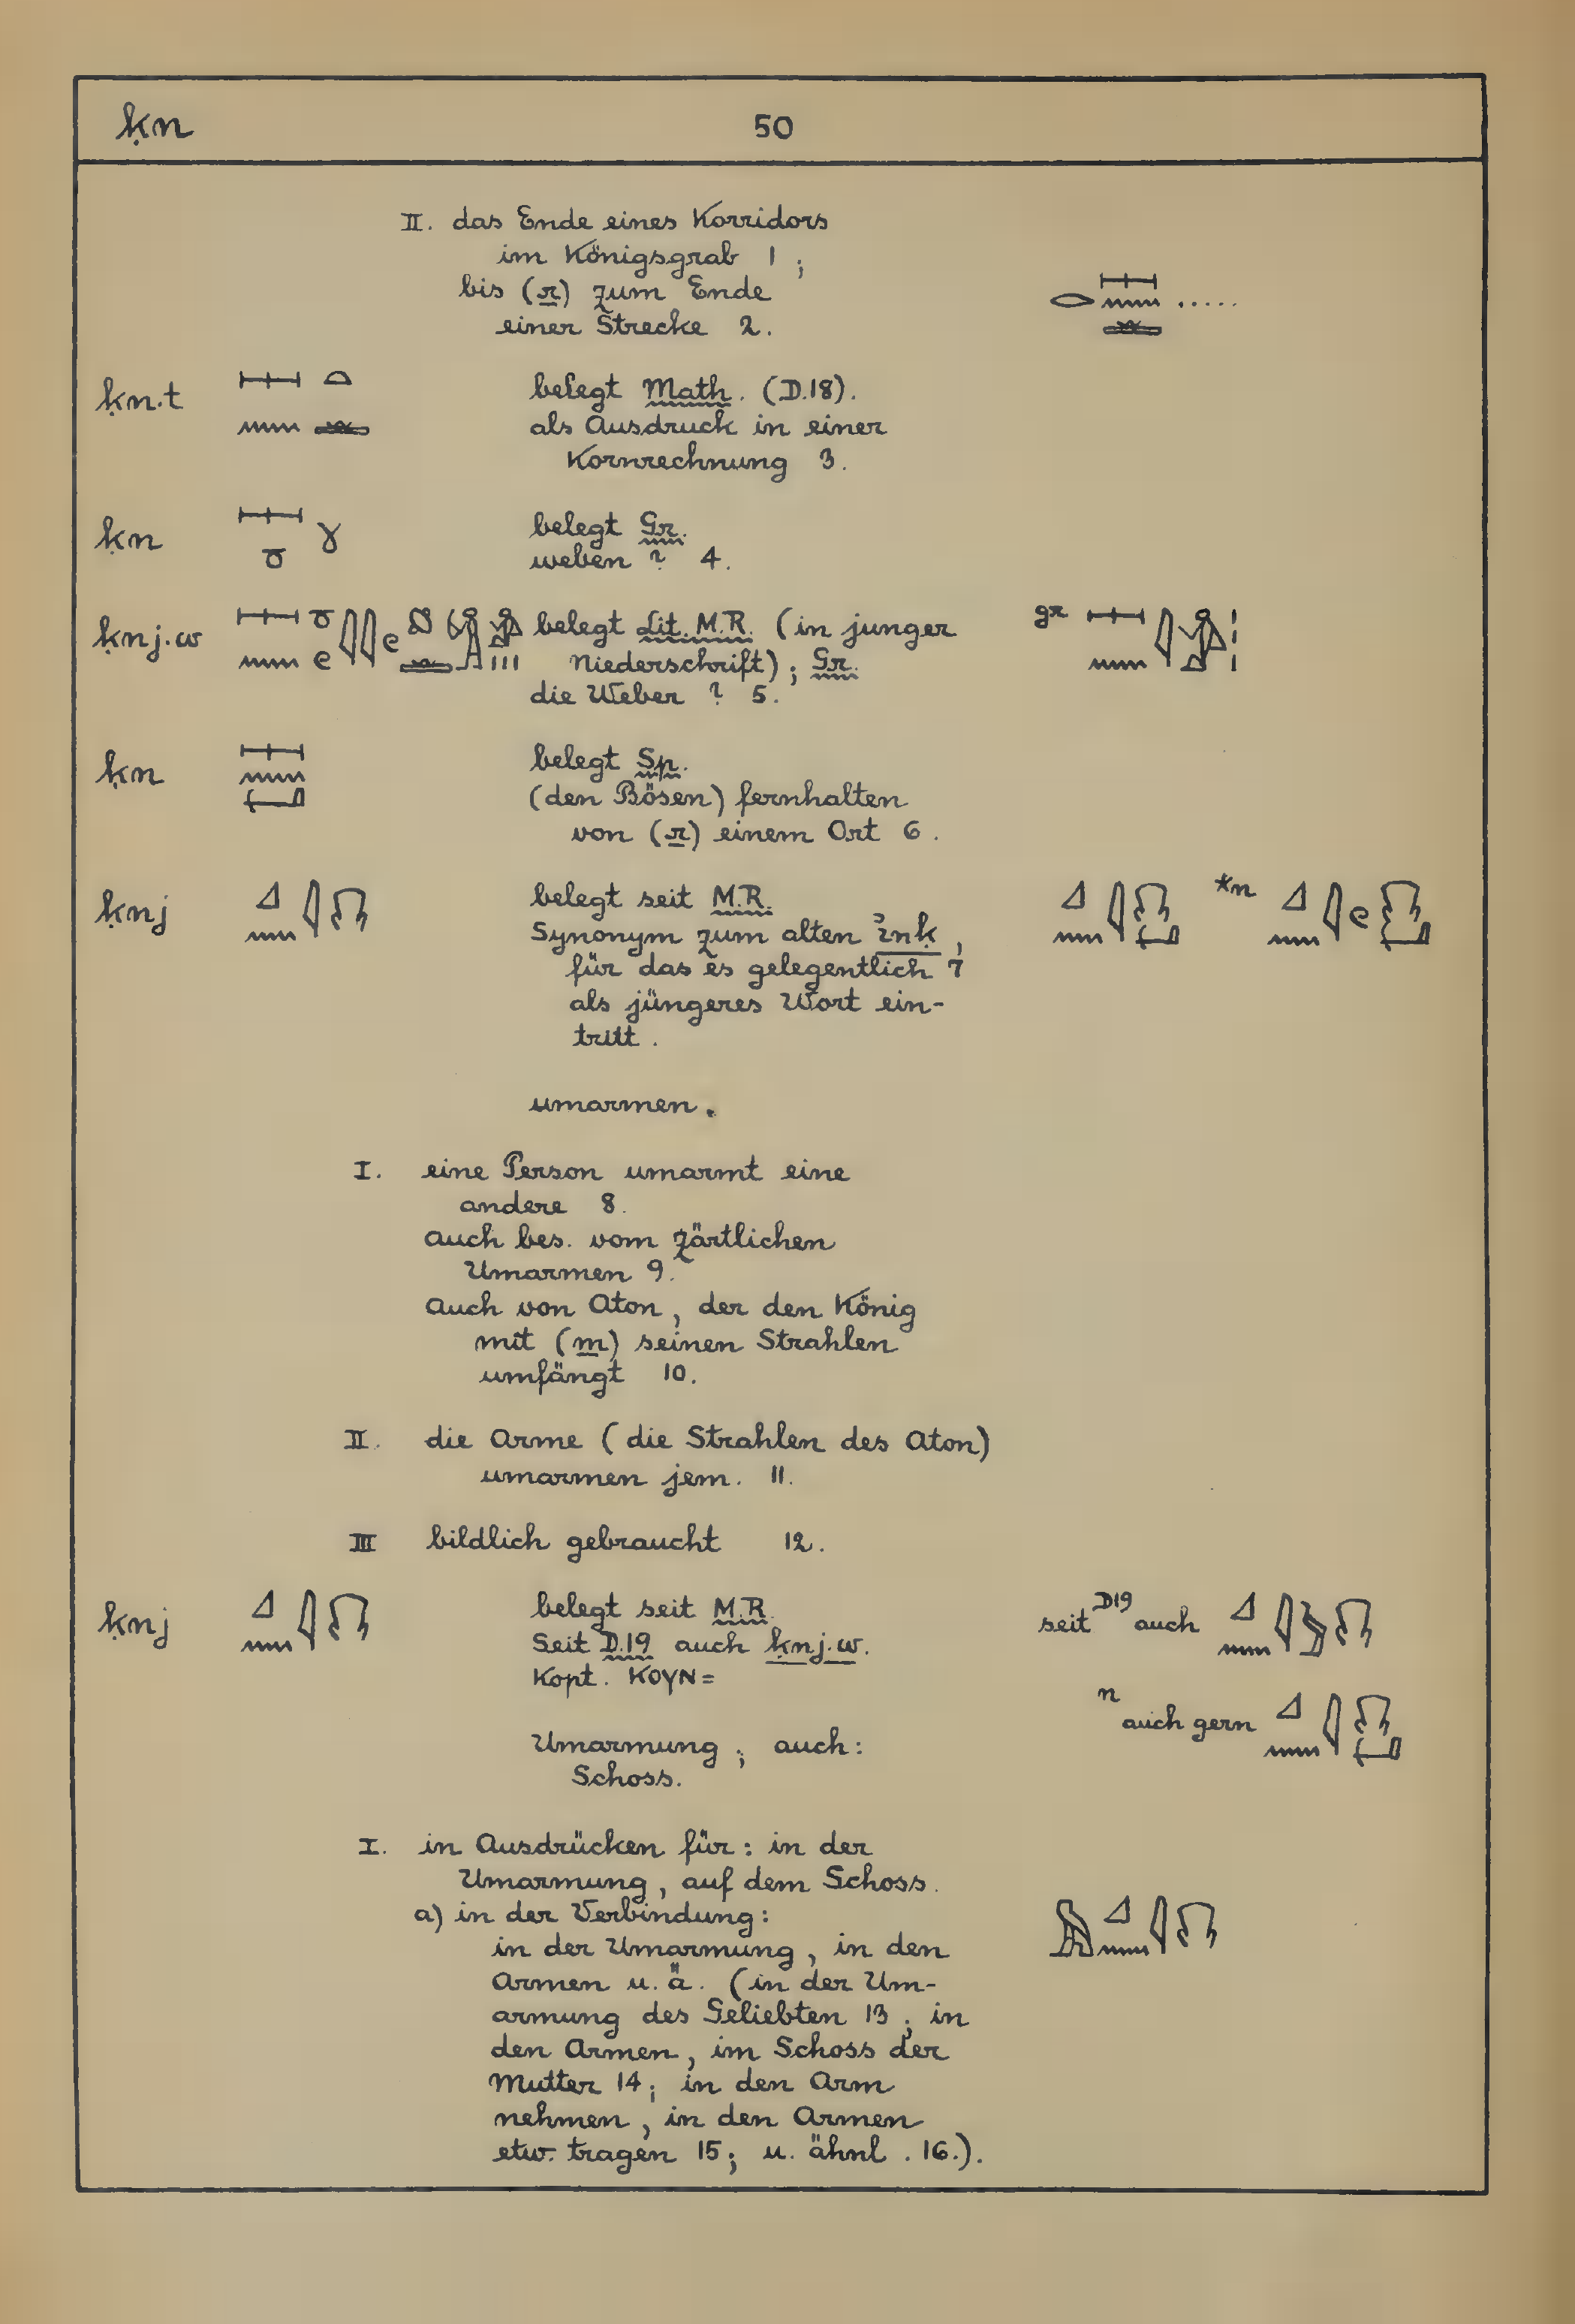 ḳn 50
II. das Ende eines Korridors
im Königsgrab 1 ;
bis (r) zum Ende
einer Strecke 2.
ḳn.t belegt Math. (D.18).
als Ausdruck in einer
Kornrechnung 3.
ḳn belegt Gr.
weben ? 4.
ḳnj.w belegt Lit. M.R. (in junger gr
Niederschrift) ; Gr.
die Weber ? 5.
ḳn belegt Sp.
(den Bösen) fernhalten
von (r) einem Ort 6.
ḳnj belegt seit M.R. *n
Synonym zum alten ἰnḳ,
für das es gelegentlich 7
als jüngeres Wort ein-
tritt.
umarmen.
I. eine Person umarmt eine
andere 8.
auch bes. vom zärtlichen
Umarmen 9.
auch von Aton, der den König
mit (m) seinen Strahlen
umfängt 10.
II. die Arme (die Strahlen des Aton)
umarmen jem. 11.
III bildlich gebraucht 12.
ḳnj belegt seit M.R. seit D19 auch
Seit D.19 auch ḳnj.w.
Kopt. ΚΟΥΝ=
n auch gern
Umarmung ; auch:
Schoss.
I. in Ausdrücken für: in der
Umarmung, auf dem Schoss.
a) in der Verbindung:
in der Umarmung, in den
Armen u. ä. (in der Um-
armung des Geliebten 13 ; in
den Armen, im Schoss der
Mutter 14; in den Arm
nehmen, in den Armen
etw. tragen 15; u. ähnl. 16.).